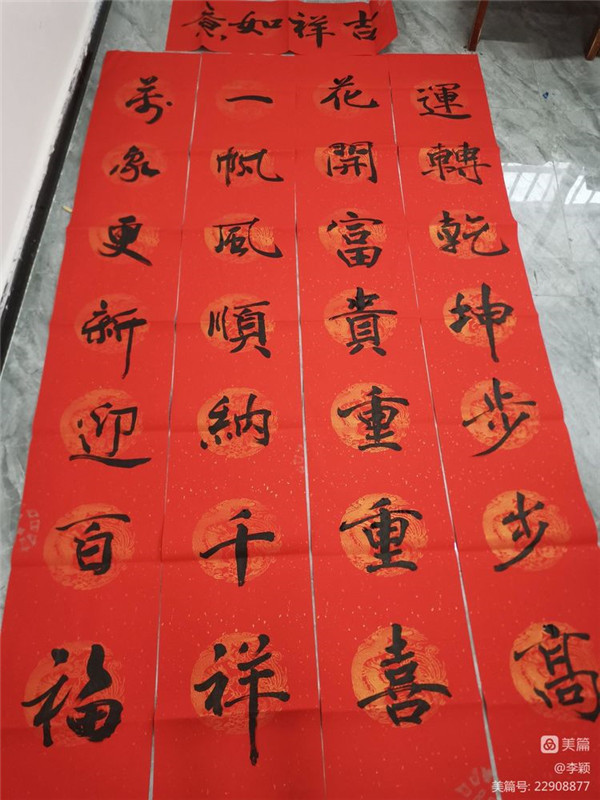 吉祥如意
運轉乾坤步步高
花開富貴重重喜
一帆風順納千祥
萬象更新迎百福
美篇
@李颖
美篇号: 22908877